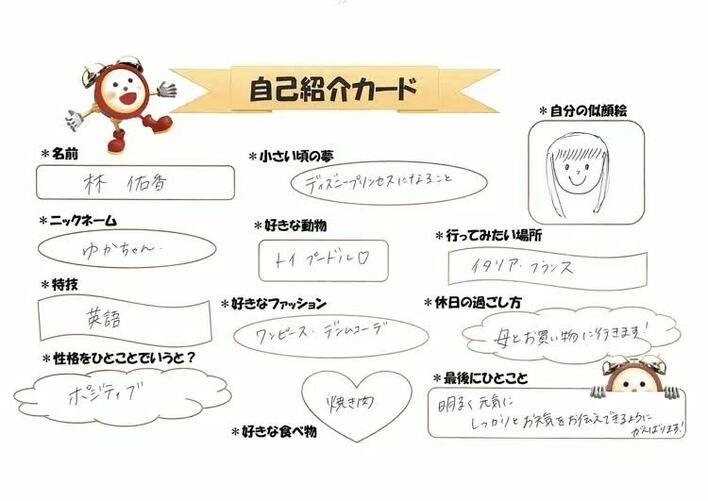 自己紹介カード
＊自分の似顔絵
＊名前
林 佑香
＊小さい頃の夢
ディズニープリンセスになること
＊ニックネーム
ゆかちゃん.
＊好きな動物
トイプードル♡
＊行ってみたい場所
イタリア・フランス
＊特技
英語
＊好きなファッション
ワンピース・デニムコーデ
＊休日の過ごし方
母とお買い物に行きます!
＊性格をひとことでいうと？
ポジティブ
焼き肉
＊好きな食べ物
＊最後にひとこと
明るく元気に
しっかりとお天気をお伝えできるように
がんばります!